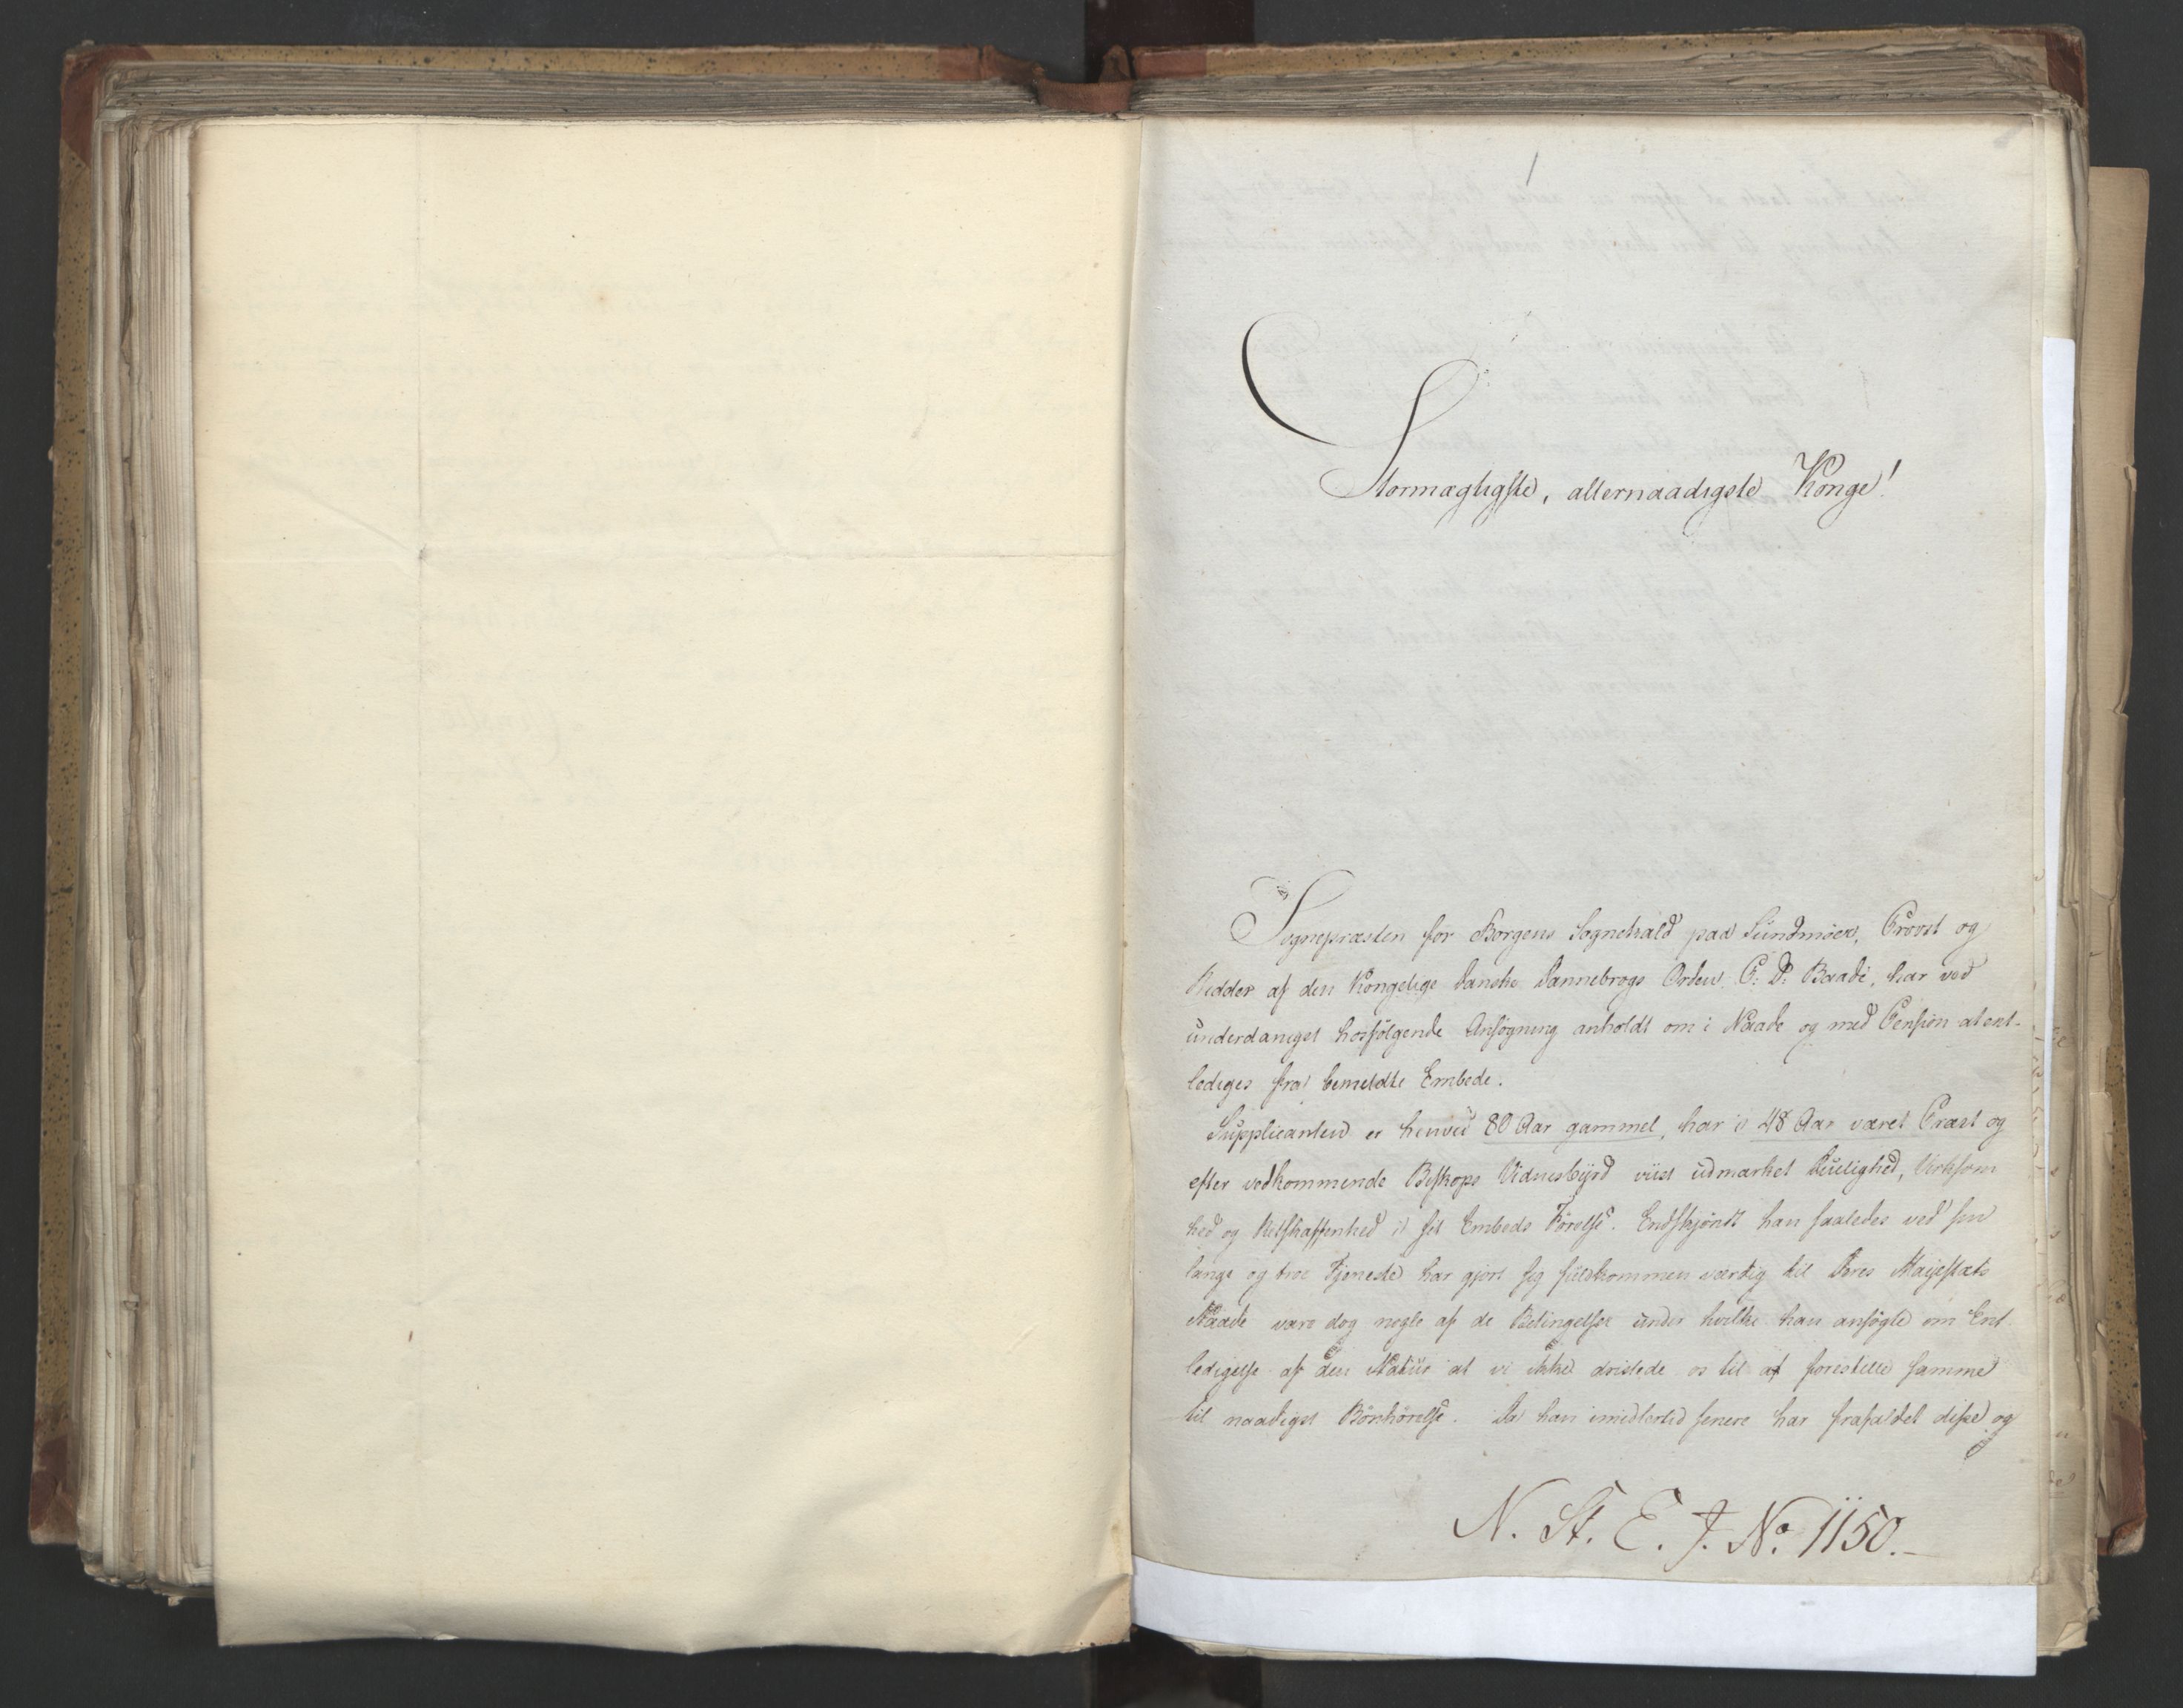 Stormægtigste, allernaadigste Konge!
Sognepræsten for Borgens Sognekald paa Sündmöer, Provst og
Ridder af den Kongelige Danske Dannebrogs Orden P: D: Baade, har ved
ünderdanigst hosfölgende Ansögning anholdt om i Naade og med Pension at ent-
lediges fra bemeldte Embede.
Süpplicanten er henved 80 Aar gammel, har i 48 Aar været Præst og
efter vedkommende Biskops Vidnesbyrd viist üdmærket Düelighed, Virksom
hed og Retskaffenhed i sit Embeds Förelse. Endskjöndt han saaledes ved sin
lange og troe Tjeneste har gjort sig füldkommen værdig til Deres Majestæts
Naade vare dog nogle af de Betingelser ünder hvilke han ansögte om Ent
ledigelse af den Natür at vi ikke dristede os til at forestille samme
til naadigst Bönhörelse. Da han imidlertid senere har frafaldet disse og
N. St. E. J. No. 1150.-